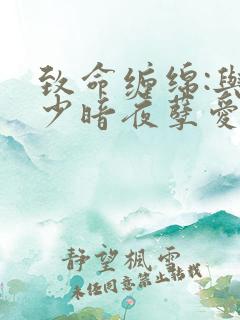 致命缠绵:與
少暗夜孽爱
静望楓雲
未经同意禁止转载